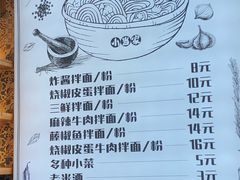 小当家
炸酱拌面/粉 8元
烧椒皮蛋拌面/粉 10元
三鲜拌面/粉 12元
麻辣牛肉拌面/粉 14元
藤椒鱼拌面/粉 14元
烧椒皮蛋牛肉拌面/粉 16元
多种小菜 5元
老米酒 3元